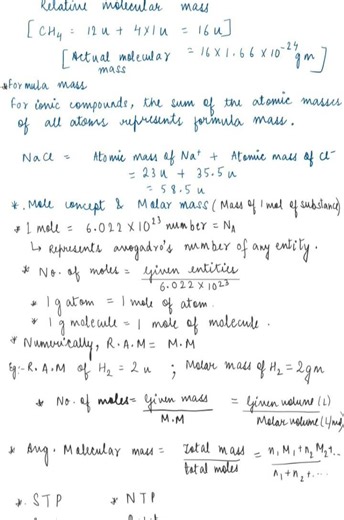 Relative molecular mass
[CH₄ = 12u + 4×1u = 16u]
[Actual molecular mass = 16×1.66×10⁻²⁴ gm]
*Formula mass
For ionic compounds, the sum of the atomic masses
of all atoms represents formula mass.
NaCl = Atomic mass of Na⁺ + Atomic mass of Cl⁻
= 23u + 35.5u
= 58.5u
*. Mole concept & Molar mass (Mass of 1 mol of substance)
* 1 mole = 6.022×10²³ number = Nₐ
↳ Represents avogadro's number of any entity.
* No. of moles = Given entities / 6.022×10²³
* 1 g atom = 1 mole of atom.
* 1 g molecule = 1 mole of molecule.
* Numerically, R.A.M = M.M
Eg:- R.A.M of H₂ = 2u ; Molar mass of H₂ = 2gm
* No. of moles = Given mass / M.M = Given volume (L) / Molar volume (L/mol)
* Avg. Molecular mass = Total mass / total moles = n₁M₁+n₂M₂+.. / n₁+n₂+....
*. STP * NTP